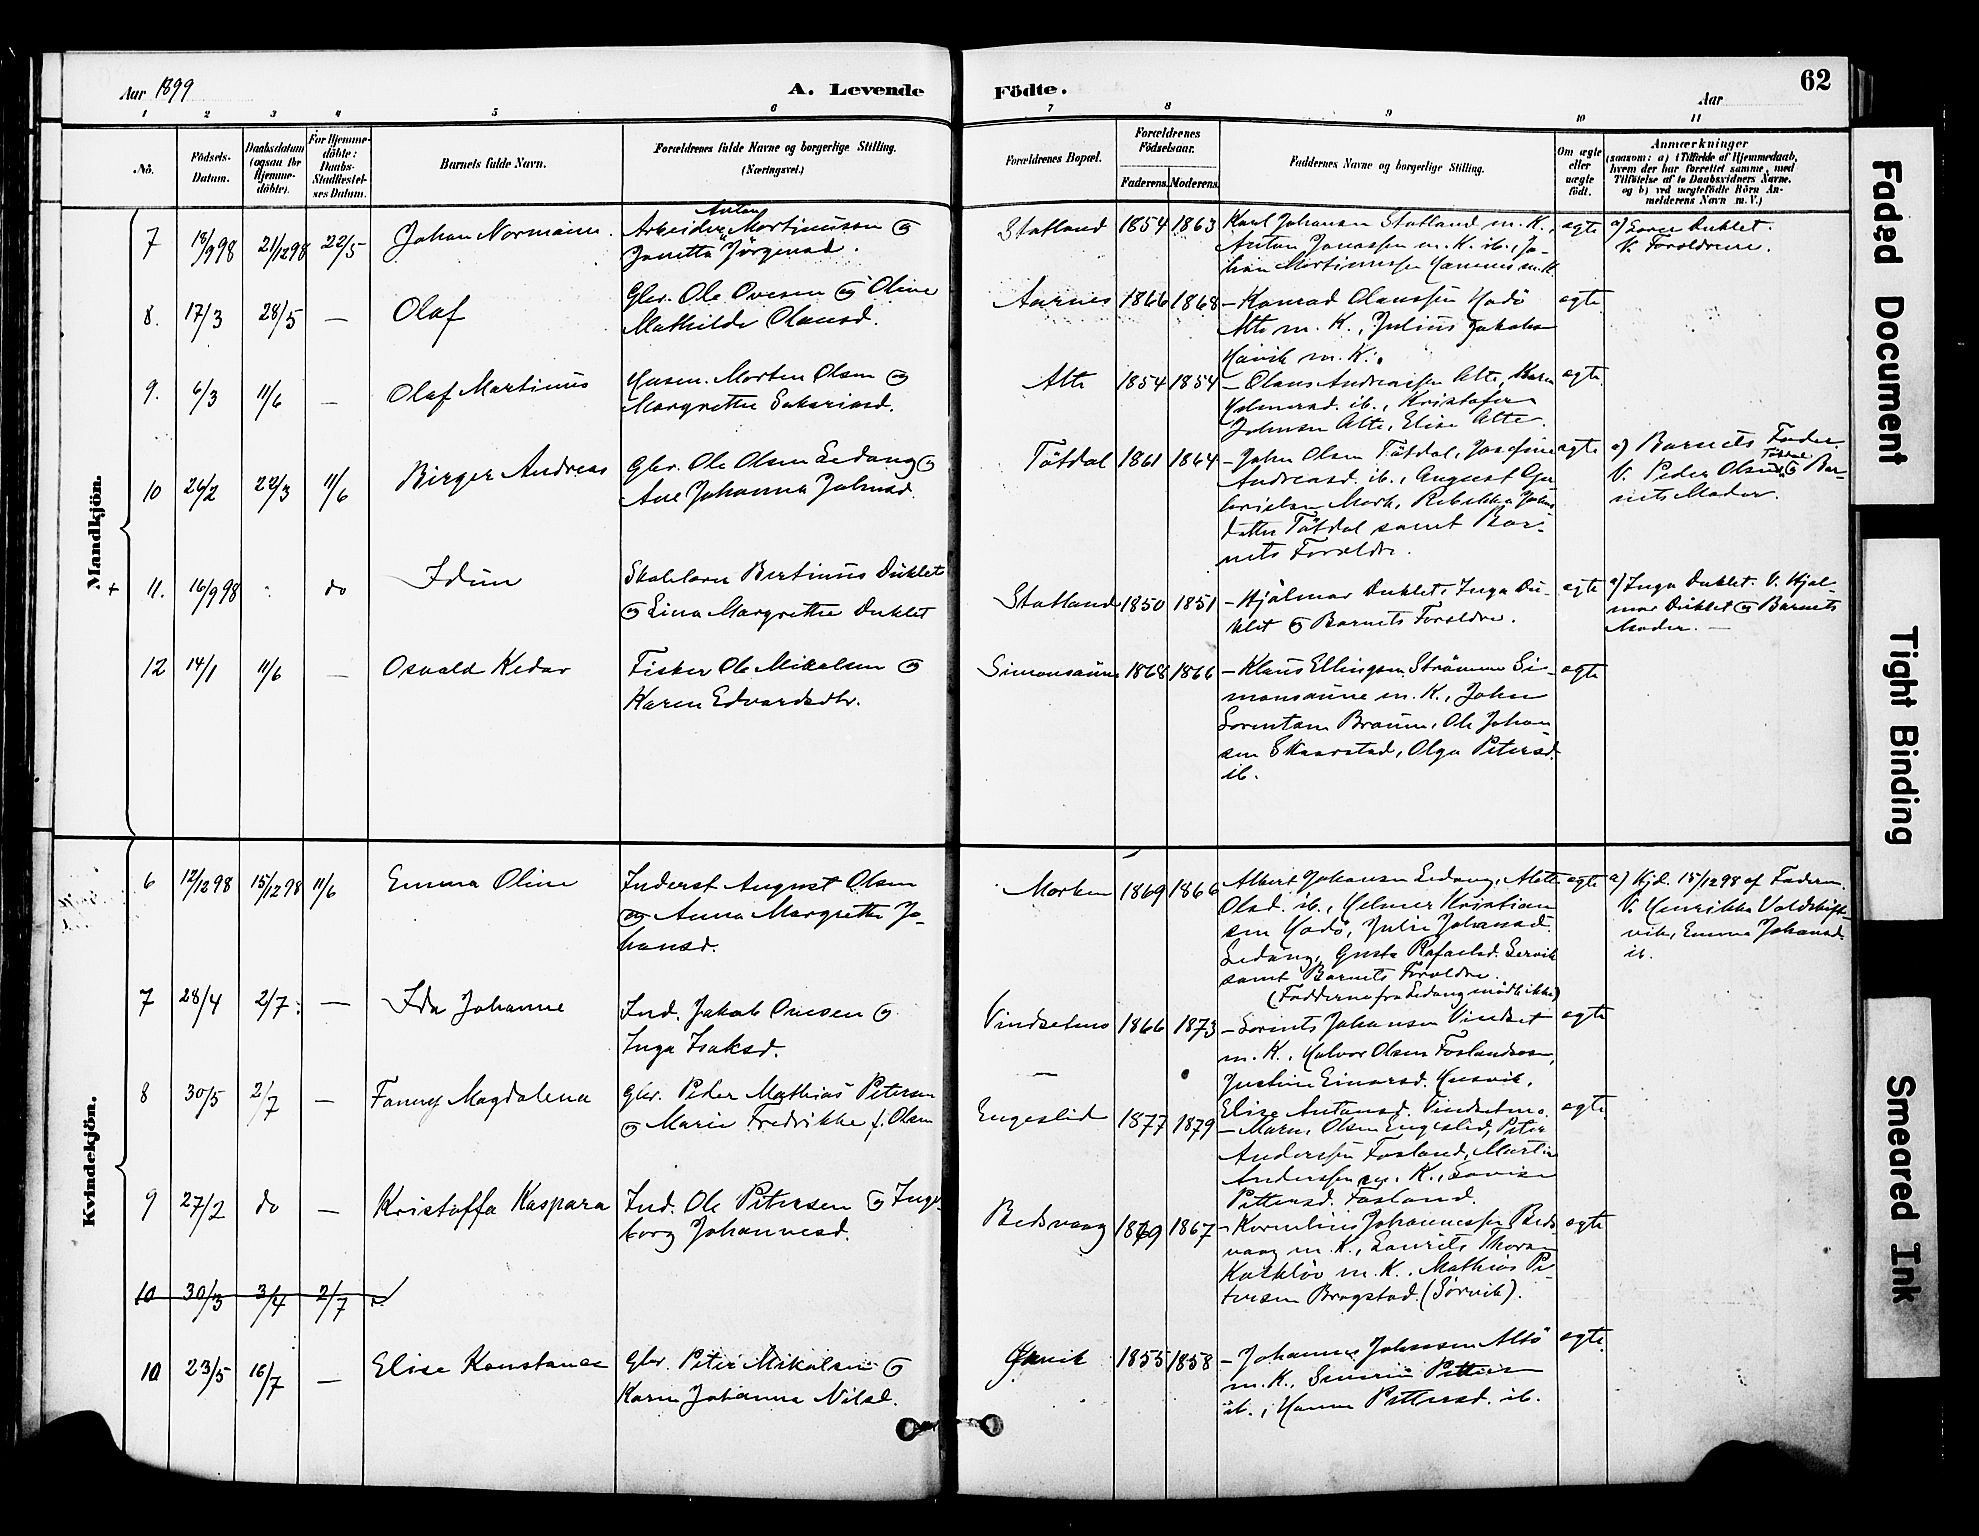 Aar 1899
A. Levende
Födte.
Aar
62
1 2 3 4 5 6 7 8 9 10 11
No.
Födsels-
Datum.
Daabsdatum
(ogsaa for
Hjemme-
döbte).
For Hjemme-
döbte:
Daabs-
Stadfæstel-
ses Datum.
Barnets fulde Navn.
Forældrenes fulde Navne og borgerlige Stilling.
(Næringsvei.)
Forældrenes Bopæl.
Forældrenes
Födselsaar.
Faderens. Moderens.
Faddernes Navne og borgerlige Stilling.
Om ægte
eller
uægte
födt.
Anmærkninger
(saasom: a) i Tilfælde af Hjemmedaab,
hvem der har forrettet samme, med
Tilföielse af to Daabsvidners Navne,
og b) ved uægtefödte Börn An-
melderens Navn m. V.)
Mandkjön.
7 18/9 98 21/12 98 22/5 Johan Normann.
Anton
Arbeider Martinussen og
Janetta Jørgensd.
Statland 1854 1863
Karl Johansen Statland m. K.,
Anton Jonassen m. K. ib., Jo-
han Martinussen m. K.
ægte
a) Duklet.
V. Forældrene.
8. 17/3 28/5 — Olaf
Gbr. Ole Ovesen og Oline
Mathilde Olausd.
Aarnes 1866 1868
— Konrad Olaussen Hodö
Alte m. K., Julius Jakobsen
m. K.
ægte
9. 6/3 11/6 — Olaf Martinus
Husm. Morten Olsen og
Margrethe Sakariasd.
Alte 1854 1854
— Olaus Andreassen Alte, Karen
ib., Kristofer
Johnsen Alte, Elise Alte.
ægte
10 26/2 22/3 11/6 Birger Andreas
Gbr. Ole Olsen Sedang og
Ane Johanna Johnsd.
Tötdal 1861 1864
— John Olsen Tötdal, Josefine
Andreasd. ib., August Ga-
brielsen Mork, Rebekka Johns-
datter Tötdal samt Bar-
nets Forældre.
ægte
a) Barnets Fader.
Tötdal
V. Peder Olsen og Bar-
nets Moder.
+ 11. 16/9 98 do Idun
Skolelærer Bertinus Duklet
og Lina Margrethe Duklet
Statland 1850 1851
— Hjalmar Duklet, Inga Du-
klet og Barnets Forældre.
ægte
a) Inga Duklet. V. Hjal-
mar Duklet og Barnets
Moder. —
12 14/1 11/6 — Osvald Kedar
Fisker Ole Mikalsen og
Karen Edvardsdtr.
Simonsaune 1868 1866
— Klaus Ellingsen Strömme Si-
monsaune m. K., Johan
Sorentsen Braun, Ole Johan-
sen Skaarstad, Olga Petersd.
ib.
ægte
Kvindekjön.
6 12/12 98 15/12 98 11/6 Emma Oline
Inderst August Olsen
og Anna Margrethe Jo-
hansd.
Morken 1869 1866
Albert Johansen Sedang, Mette
Olsd. ib., Helmer Kristian-
sen Hodö, Julie Johansd.
Sedang, Gusta Rafaelsd. Servik
samt Barnets Forældre.
(Fadderne fra Sedang mödte ikke)
ægte
a) Hjd. 15/12 98 af Faderen.
V. Henrikke Valdskift-
vik, Emma Johansd.
ib.
7 28/4 2/7 — Ida Johanne
Ind. Jakob Ovesen og
Inga Isaksd.
Vindsetmo 1866 1873
— Sorents Johansen Vindset
m. K., Halvor Olsen Foslandsosen,
Justine Einarsd. Husvik,
Elise Antonsd. Vindsetmo.
ægte
8 30/5 2/7 — Fanny Magdalena
Gbr. Peder Mathias Petersen
og Marie Fredrikke f. Olsen
Engeslid 1877 1879
— Olsen Engeslid, Peter
Anderssen Fosland, Martin
Anderssen m. K., Lovise
Pettersd. Fosland.
ægte
9 27/2 do — Kristoffa Kaspara
Ind. Ole Petersen og Inge-
borg Johannesd.
Bedsvaag 1869 1867
— Kornelius Johannessen Beds-
vaag m. K., Laurits Thorsen
m. K. Mathias Pe-
tersen Bragstad (Sörvik).
ægte
10 30/3 3/4 2/7
10 23/5 16/7 — Elise Konstanse
Gbr. Peter Mikalsen og
Karen Johanna Nilsd.
1855 1858
— Johannes Johnsen Altö
m. K., Severin Pettersen
ib., Hanna Pettersd. ib.
ægte
Faded Document
Tight Binding
Smeared Ink